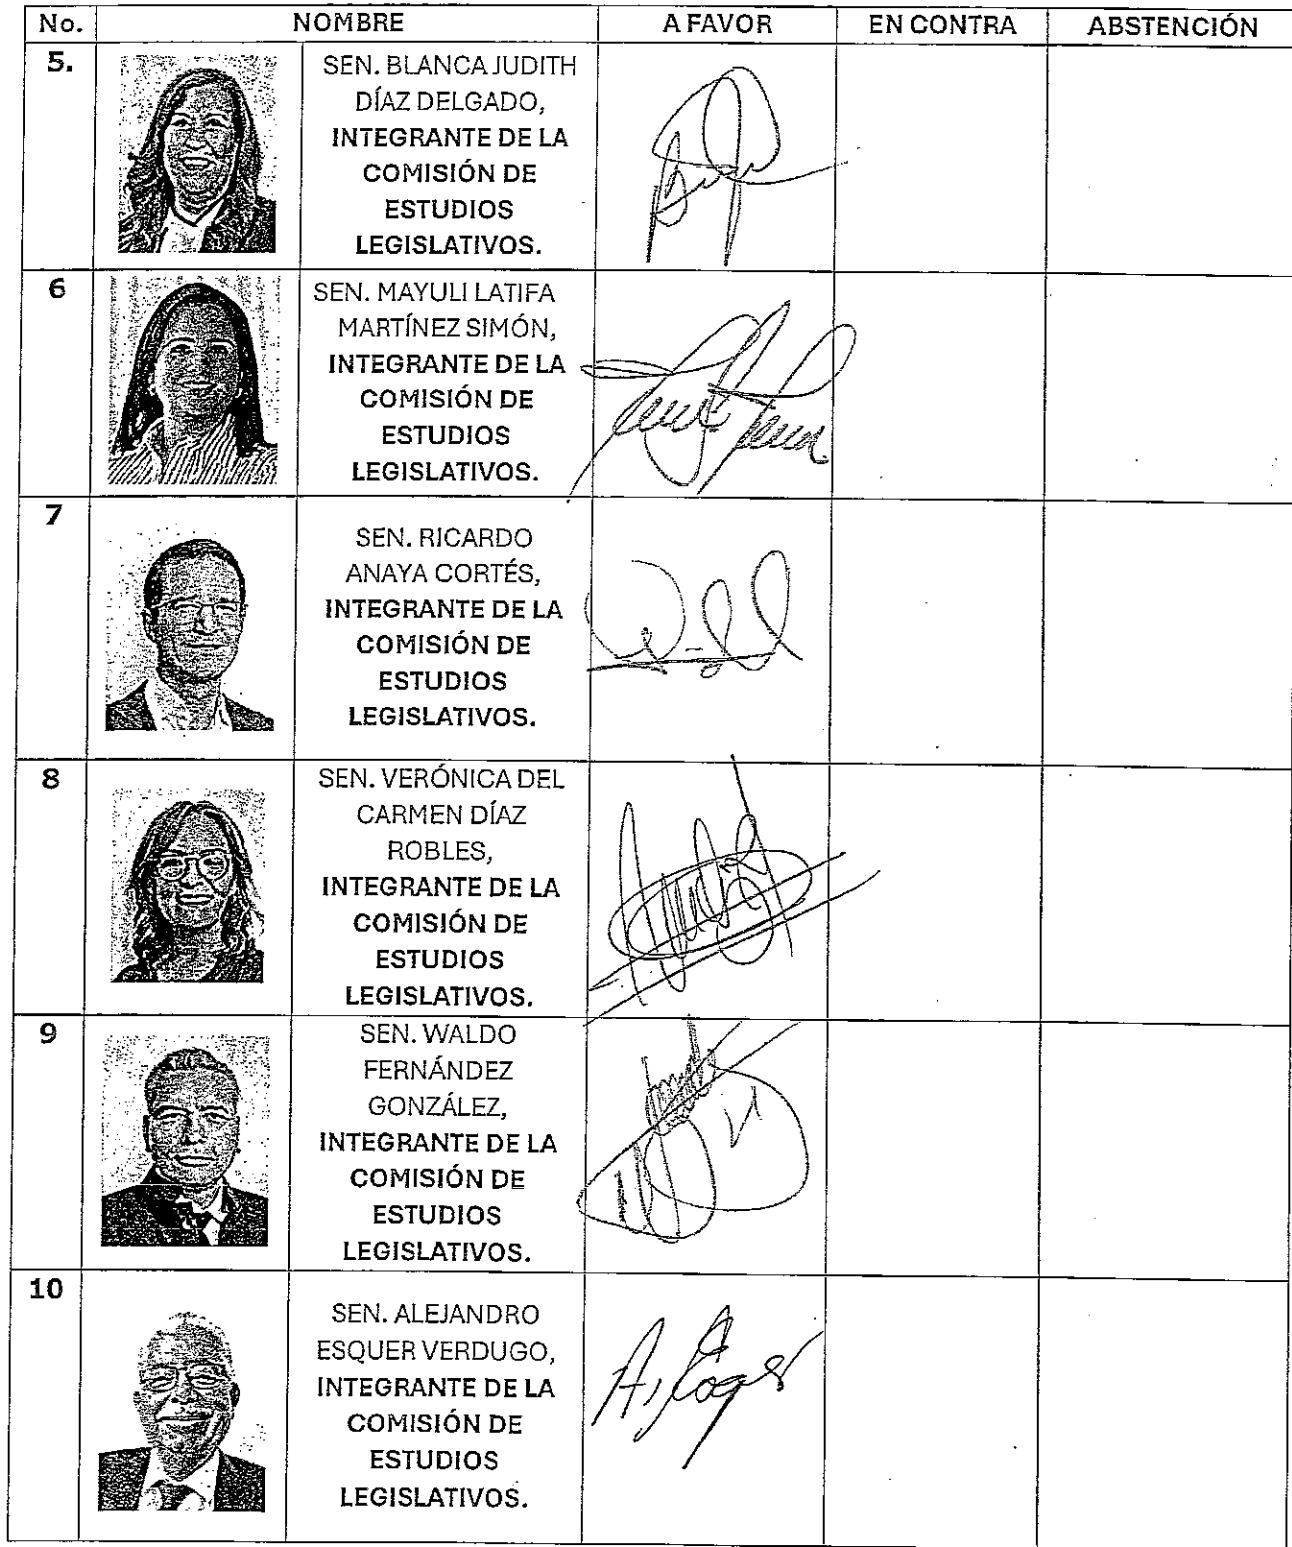 No. NOMBRE A FAVOR EN CONTRA ABSTENCIÓN
5.
SEN. BLANCA JUDITH
DÍAZ DELGADO,
INTEGRANTE DE LA
COMISIÓN DE
ESTUDIOS
LEGISLATIVOS.
6
SEN. MAYULI LATIFA
MARTÍNEZ SIMÓN,
INTEGRANTE DE LA
COMISIÓN DE
ESTUDIOS
LEGISLATIVOS.
7
SEN. RICARDO
ANAYA CORTÉS,
INTEGRANTE DE LA
COMISIÓN DE
ESTUDIOS
LEGISLATIVOS.
8
SEN. VERÓNICA DEL
CARMEN DÍAZ
ROBLES,
INTEGRANTE DE LA
COMISIÓN DE
ESTUDIOS
LEGISLATIVOS.
9
SEN. WALDO
FERNÁNDEZ
GONZÁLEZ,
INTEGRANTE DE LA
COMISIÓN DE
ESTUDIOS
LEGISLATIVOS.
10
SEN. ALEJANDRO
ESQUER VERDUGO,
INTEGRANTE DE LA
COMISIÓN DE
ESTUDIOS
LEGISLATIVOS.